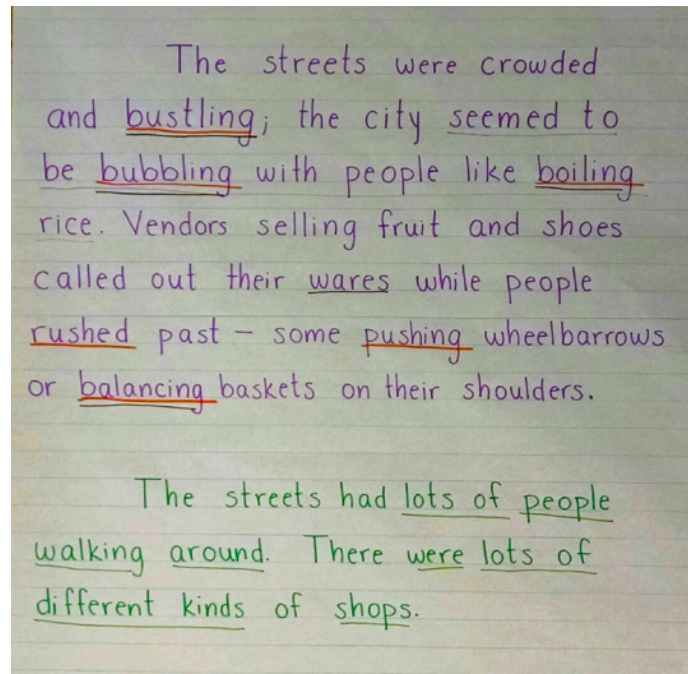 The streets were crowded
and bustling; the city seemed to
be bubbling with people like boiling
rice. Vendors selling fruit and shoes
called out their wares while people
rushed past – some pushing wheelbarrows
or balancing baskets on their shoulders.
The streets had lots of people
walking around. There were lots of
different kinds of shops.